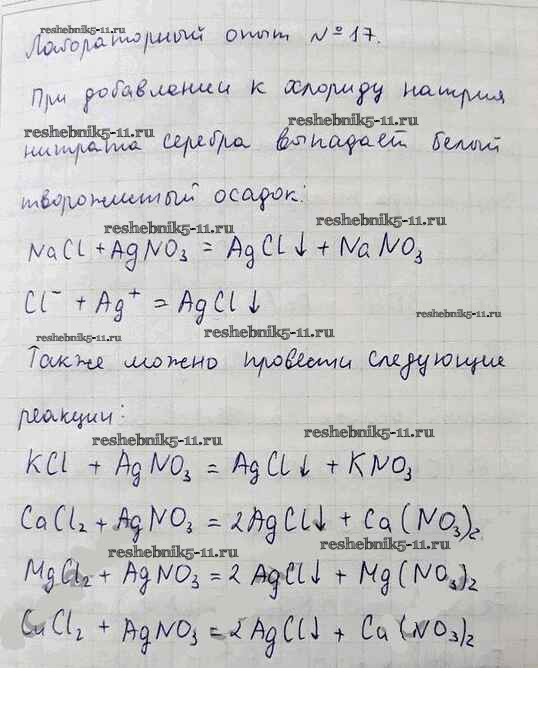 reshebnik5-11.ru
Лабораторный опыт №17.
При добавлении к хлориду натрия
reshebnik5-11.ru reshebnik5-11.ru
нитрата серебра выпадает белый
творожистый осадок:
reshebnik5-11.ru reshebnik5-11.ru
NaCl + AgNO₃ = AgCl↓ + NaNO₃
Cl⁻ + Ag⁺ = AgCl↓
reshebnik5-11.ru
reshebnik5-11.ru reshebnik5-11.ru
Также можно провести следующие
реакции:
reshebnik5-11.ru reshebnik5-11.ru
KCl + AgNO₃ = AgCl↓ + KNO₃
CaCl₂ + AgNO₃ = 2AgCl↓ + Ca(NO₃)₂
reshebnik5-11.ru reshebnik5-11.ru
MgCl₂ + AgNO₃ = 2 AgCl↓ + Mg(NO₃)₂
CuCl₂ + AgNO₃ = 2AgCl↓ + Ca(NO₃)₂